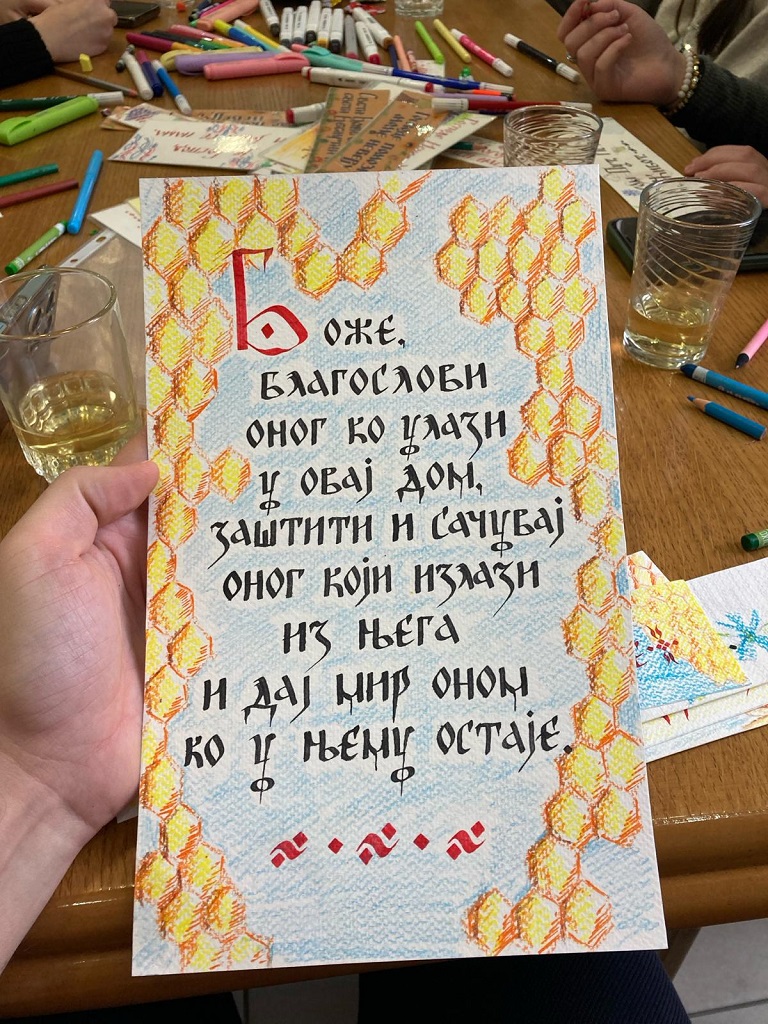 Боже,
благослови
оног ко улази
у овај дом,
заштити и сачувај
оног који излази
из њега
и дај мир оном
ко у њему остаје.